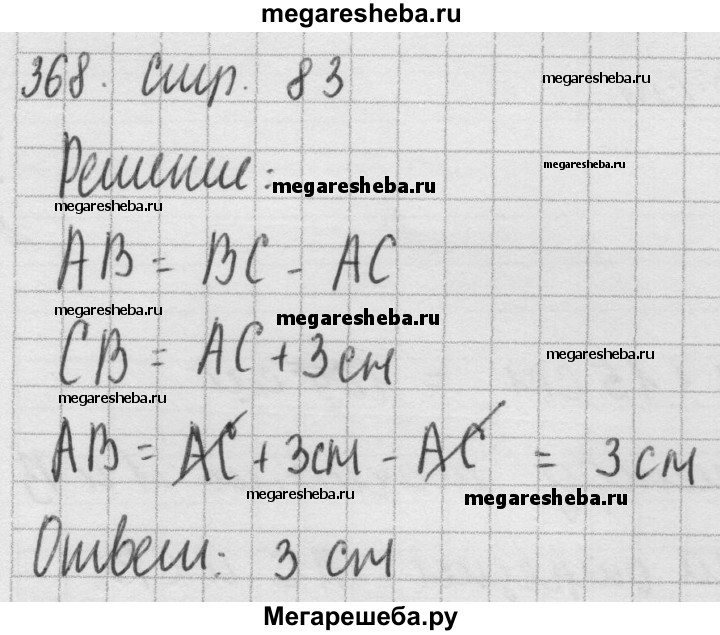 megaresheba.ru
368. стр. 83
megaresheba.ru
Решение:
megaresheba.ru
megaresheba.ru
megaresheba.ru
AB = BC - AC
megaresheba.ru
megaresheba.ru
CB = AC + 3 см
megaresheba.ru
megaresheba.ru
AB = AC + 3 см - AC = 3 см
megaresheba.ru
megaresheba.ru
Ответ: 3 см
Мегарешеба.ру